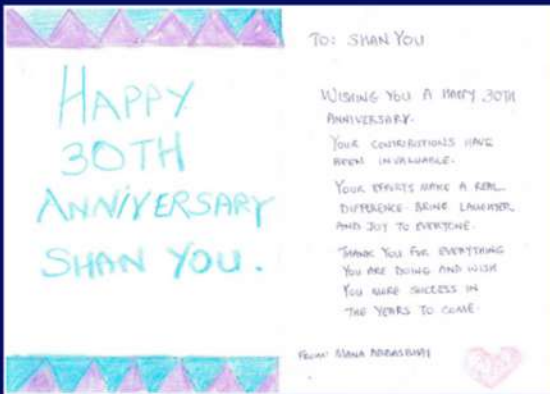 HAPPY
30TH
ANNIVERSARY
SHAN YOU.
TO: SHAN YOU
WISHING YOU A HAPPY 30TH
ANNIVERSARY.
YOUR CONTRIBUTIONS HAVE
BEEN INVALUABLE.
YOUR EFFORTS MAKE A REAL
DIFFERENCE BRING LAUGHTER
AND JOY TO EVERYONE.
THANK YOU FOR EVERYTHING
YOU ARE DOING AND WISH
YOU MORE SUCCESS IN
THE YEARS TO COME.
FROM: MANA